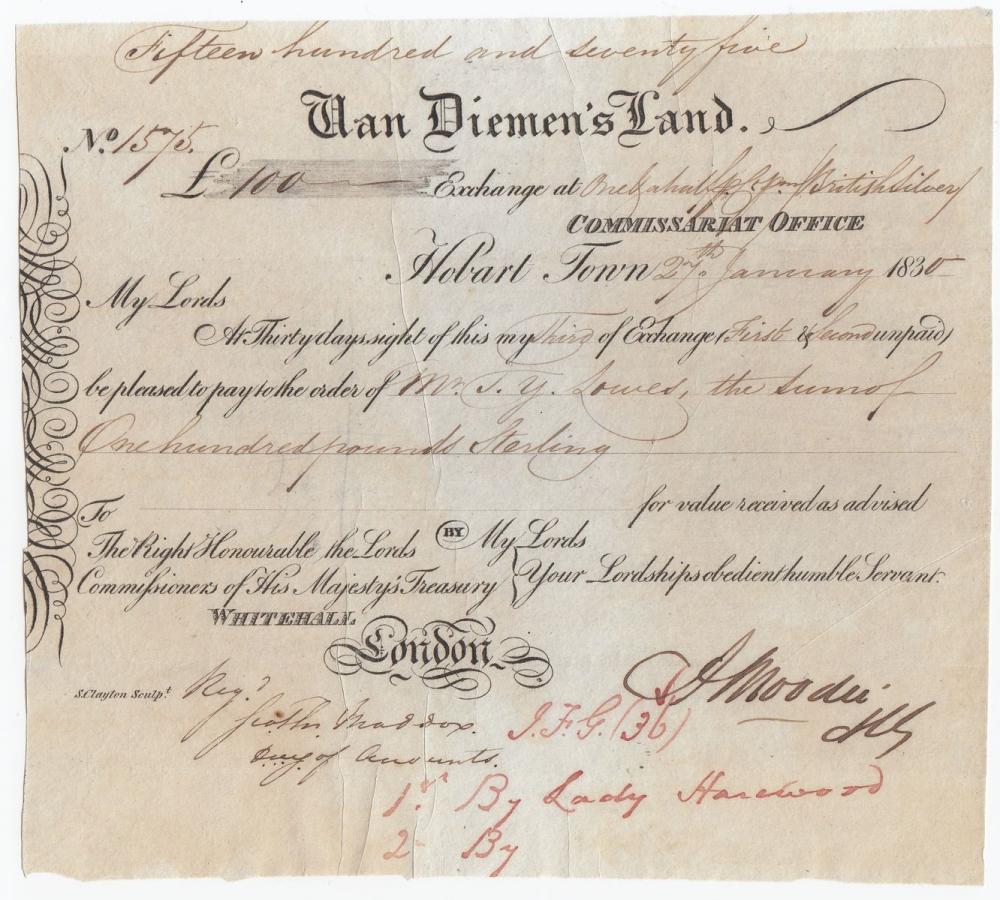 Fifteen hundred and seventy five
Van Diemen's Land.
No. 1575.
£ 100 Exchange at One & a half p. Ct. Pm. (British Silver)
COMMISSARIAT OFFICE
Hobart Town 27th January 1830
My Lords
At Thirty days sight of this my Third of Exchange (First & Second unpaid)
be pleased to pay to the order of Mr. T. Y. Lowes, the sum of
One hundred pounds Sterling
for value received as advised
To
The Right Honourable the Lords
Commissioners of His Majesty's Treasury
WHITEHALL
London
BY My Lords
Your Lordships obedient humble Servant.
S. Clayton Sculpt.
Regd.
Maddox.
of Accounts.
Moodie
J. F. G. (36)
1st. By Lady Harewood
2 By